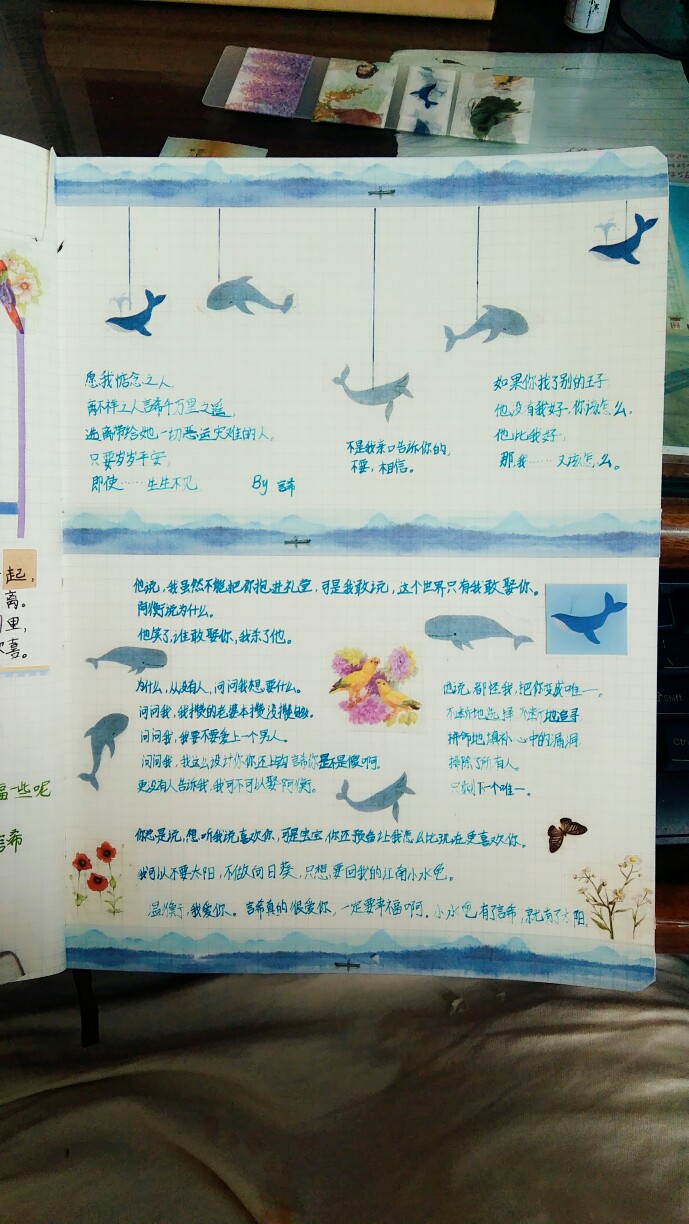 愿我惦念之人
再不祥之人言希千万里之遥,
逃离带给她一切恶运灾难的人。
只要岁岁平安,
即使……生生不见
By 言希
不是我亲口告诉你的,
不要,相信。
如果你找了别的王子
他没有我好,你该怎么。
他比我好,
那我……又该怎么。
他说,我虽然不能把你抱进礼堂,可是我敢说,这个世界只有我敢娶你。
阿衡说为什么。
他笑了,谁敢娶你,我杀了他。
为什么,从没有人,问问我想要什么。
问问我,我攒的老婆本攒没攒够。
问问我,我要不要爱上一个男人。
问问我,我这么设计你你还上钩言希你是不是傻啊。
更没有人告诉我,我可不可以娶阿衡。
他说,都怪我,把你变成唯一。
不断地选择不断地追寻
拼命地填补心中的漏洞
排除了所有人。
只剩下一个唯一。
你总是说,想听我说喜欢你,可是宝宝,你还预备让我怎么比现在更喜欢你。
我可以不要太阳,不做向日葵,只想要回我的江南小水龟。
温衡,我爱你。言希真的很爱你,一定要幸福啊。小水龟有了言希,就有了太阳。
起,
离。
里,
欢喜。
福一些呢
言希
Shift